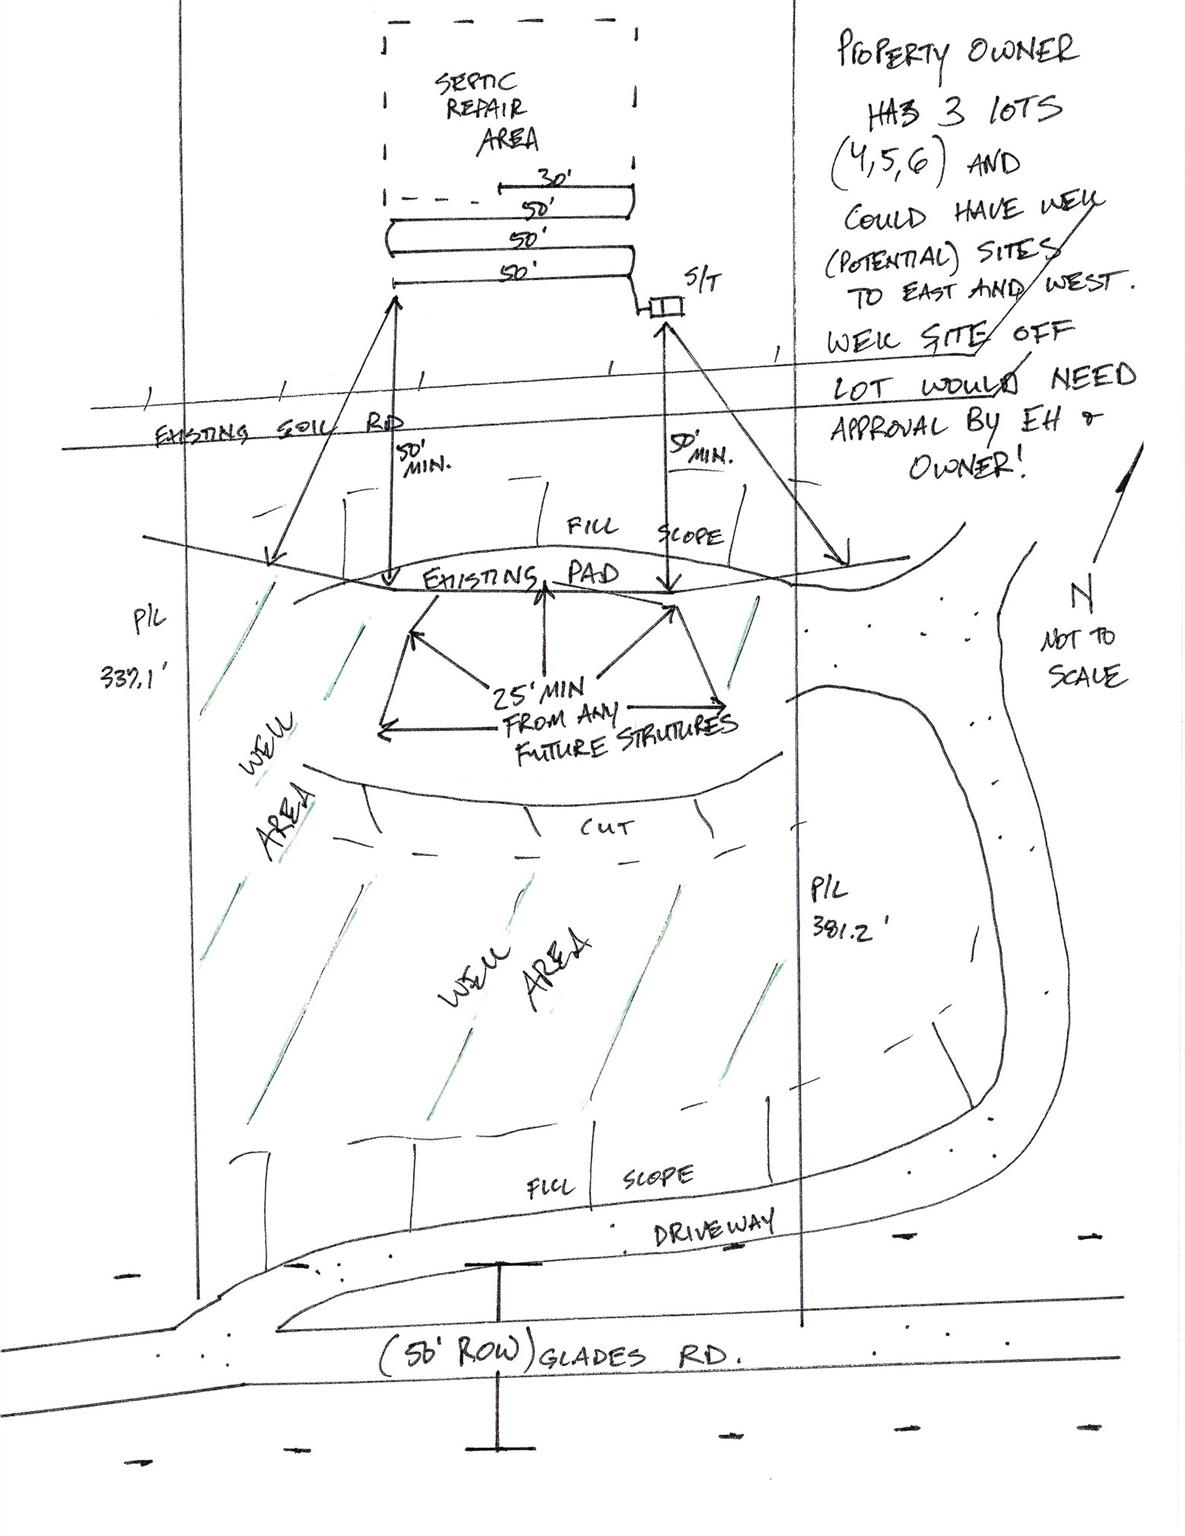 PROPERTY OWNER
HAS 3 LOTS
(4,5,6) AND
COULD HAVE WELL
(POTENTIAL) SITES
TO EAST AND WEST.
WELL SITE OFF
LOT WOULD NEED
APPROVAL BY EH &
OWNER!
SEPTIC
REPAIR
AREA
30'
50'
50'
50'
S/T
EXISTING SOIL RD
50'
MIN.
50'
MIN.
FILL SCOPE
EXISTING PAD
N
NOT TO
SCALE
P/L
337.1'
25' MIN
FROM ANY
FUTURE STRUTURES
WELL
AREA
CUT
P/L
381.2'
WELL AREA
FILL SCOPE
DRIVEWAY
(50' ROW) GLADES RD.